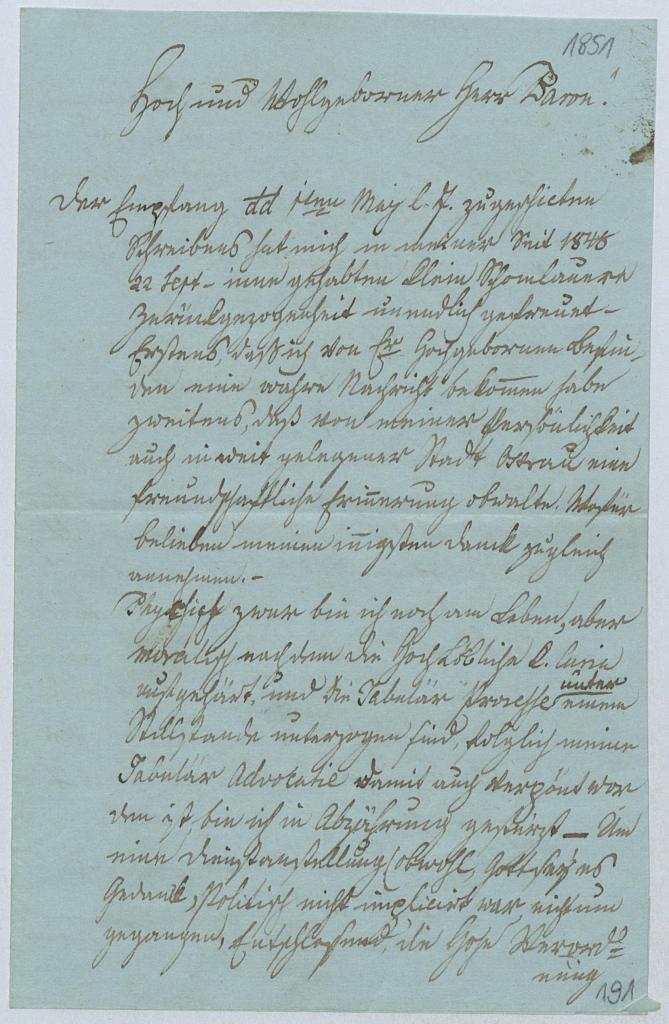 1851
Hoch und Wohlgeborner Herr Baron!
Der Empfang dd 1ten May l. J. zugeschickten
Schreibens hat mich in meiner Seit 1848
22 Sept – inne gehabten Klein Schomlauere
Zurückgezogenheit unendlich gefreuet –
Erstens, daß ich von Er Hochgebornen Befin-
den eine wahre Nachricht bekommen habe
zweitens, daß von meiner Persönlichkeit
auch in weit gelegener Stadt Ostrau eine
freundschaftliche Erinnerung obwalte. Wofür
belieben meinen innigsten Danck zugleich
annehmen. –
Physisch zwar bin ich noch am Leben, aber
moralisch nach dem die Hochlöbliche C. Curia
aufgehört, und die Tabular Processe unter einem
Stillstande unterzogen sind, folglich meine
Tabulär Advocatie damit auch verpönt wor
den ist, bin ich in Abzährung gestürzt – Um
eine Dienstanstellung (obwohl, Gott sey es
Gedank, Politisch nicht implicirt war, nicht um
gegangen, Entschlossend, die Hohe Verord-
nung
191